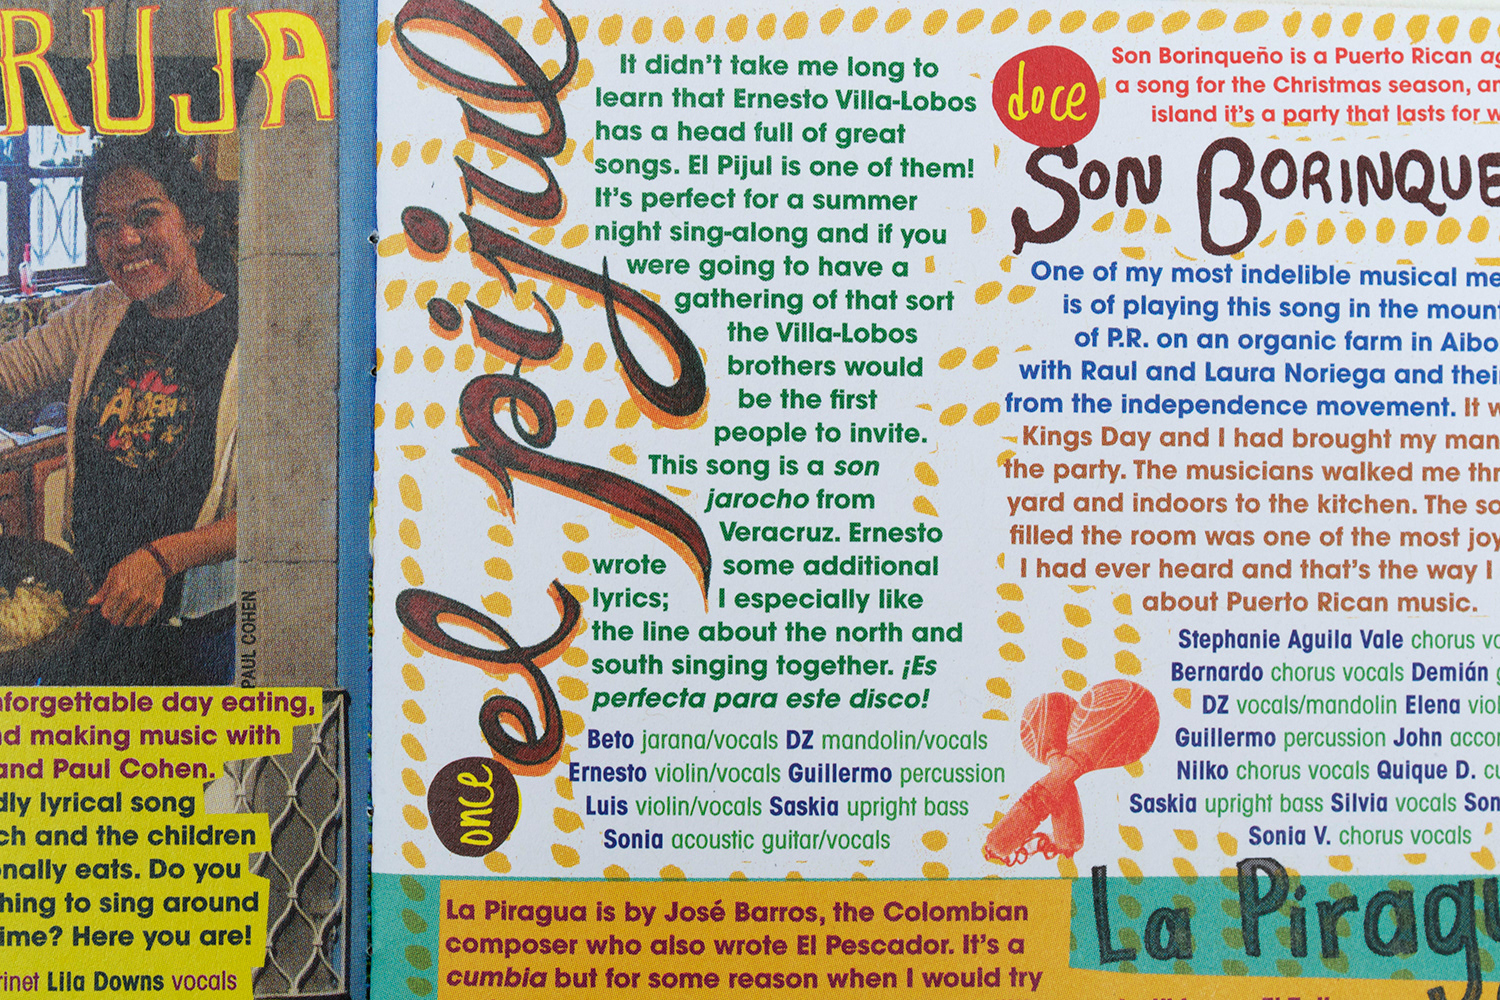 RUJA
PAUL COHEN
nforgettable day eating,
nd making music with
and Paul Cohen.
dly lyrical song
ch and the children
onally eats. Do you
hing to sing around
ime? Here you are!
rinet Lila Downs vocals
el pijul
once
It didn't take me long to
learn that Ernesto Villa-Lobos
has a head full of great
songs. El Pijul is one of them!
It's perfect for a summer
night sing-along and if you
were going to have a
gathering of that sort
the Villa-Lobos
brothers would
be the first
people to invite.
This song is a son
jarocho from
Veracruz. Ernesto
wrote some additional
lyrics; I especially like
the line about the north and
south singing together. ¡Es
perfecta para este disco!
Beto jarana/vocals DZ mandolin/vocals
Ernesto violin/vocals Guillermo percussion
Luis violin/vocals Saskia upright bass
Sonia acoustic guitar/vocals
doce
Son Borinqueño is a Puerto Rican ag
a song for the Christmas season, an
island it's a party that lasts for w
SON BORINQUE
One of my most indelible musical me
is of playing this song in the moun
of P.R. on an organic farm in Aibo
with Raul and Laura Noriega and thei
from the independence movement. It w
Kings Day and I had brought my man
the party. The musicians walked me thr
yard and indoors to the kitchen. The so
filled the room was one of the most joy
I had ever heard and that's the way I
about Puerto Rican music.
Stephanie Aguila Vale chorus vo
Bernardo chorus vocals Demián g
DZ vocals/mandolin Elena viol
Guillermo percussion John accor
Nilko chorus vocals Quique D. cu
Saskia upright bass Silvia vocals Son
Sonia V. chorus vocals
La Piragu
La Piragua is by José Barros, the Colombian
composer who also wrote El Pescador. It's a
cumbia but for some reason when I would try